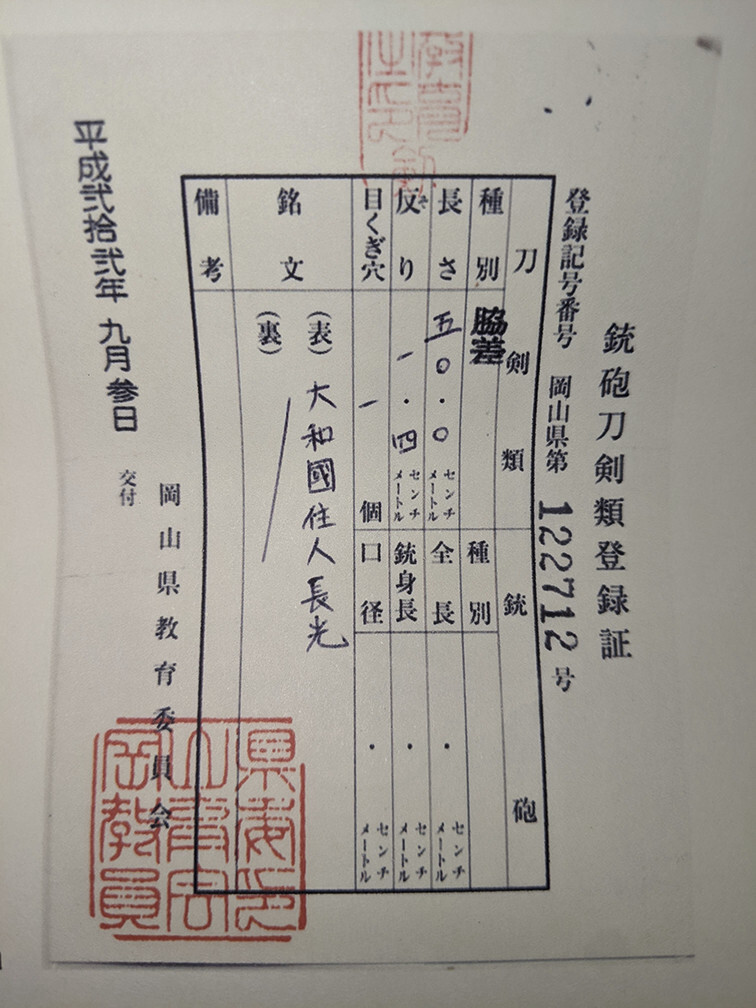 銃砲刀剣類登録証
登録記号番号 岡山県第 122712 号
刀剣類
銃砲
種別 脇差
長さ 五〇.〇 センチメートル
反り 一.四 センチメートル
そ
目くぎ穴 一 個
種別
全長 . センチメートル
銃身長 . センチメートル
口径 . センチメートル
銘文
(表) 大和國住人長光
(裏)
備考
岡山県教育委員会
平成弐拾弐年 九月 参日 交付